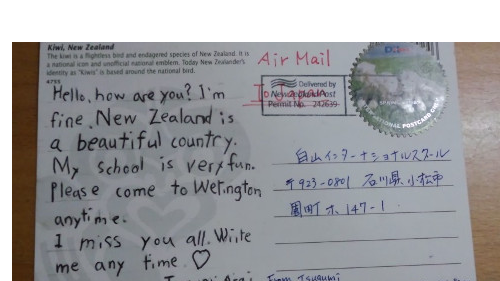 Kiwi, New Zealand
The kiwi is a flightless bird and endangered species of New Zealand. It is
a national icon and unofficial national emblem. Today New Zealander's
identity as "Kiwis" is based around the national bird.
4755
Air Mail
To Japan
Delivered by
New Zealand Post
Permit No. 242639
Hello, how are you? I'm
fine. New Zealand is
a beautiful country.
My school is very fun.
Please come to Welington
anytime.
I miss you all. Write
me any time ♡
From Tsugumi
白山インターナショナルスクール
〒923-0801 石川県小松市
園町ホ147-1